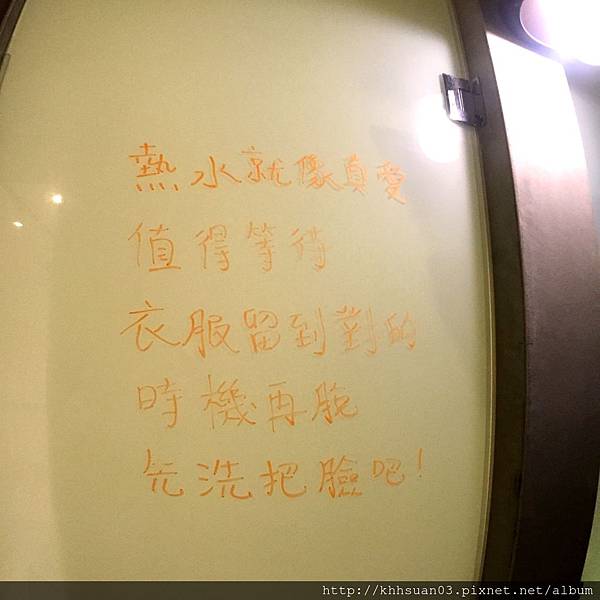 熱水就像真愛
值得等待
衣服留到對的
時機再脫
先洗把臉吧!
http://khhsuan03.pixnet.net/album